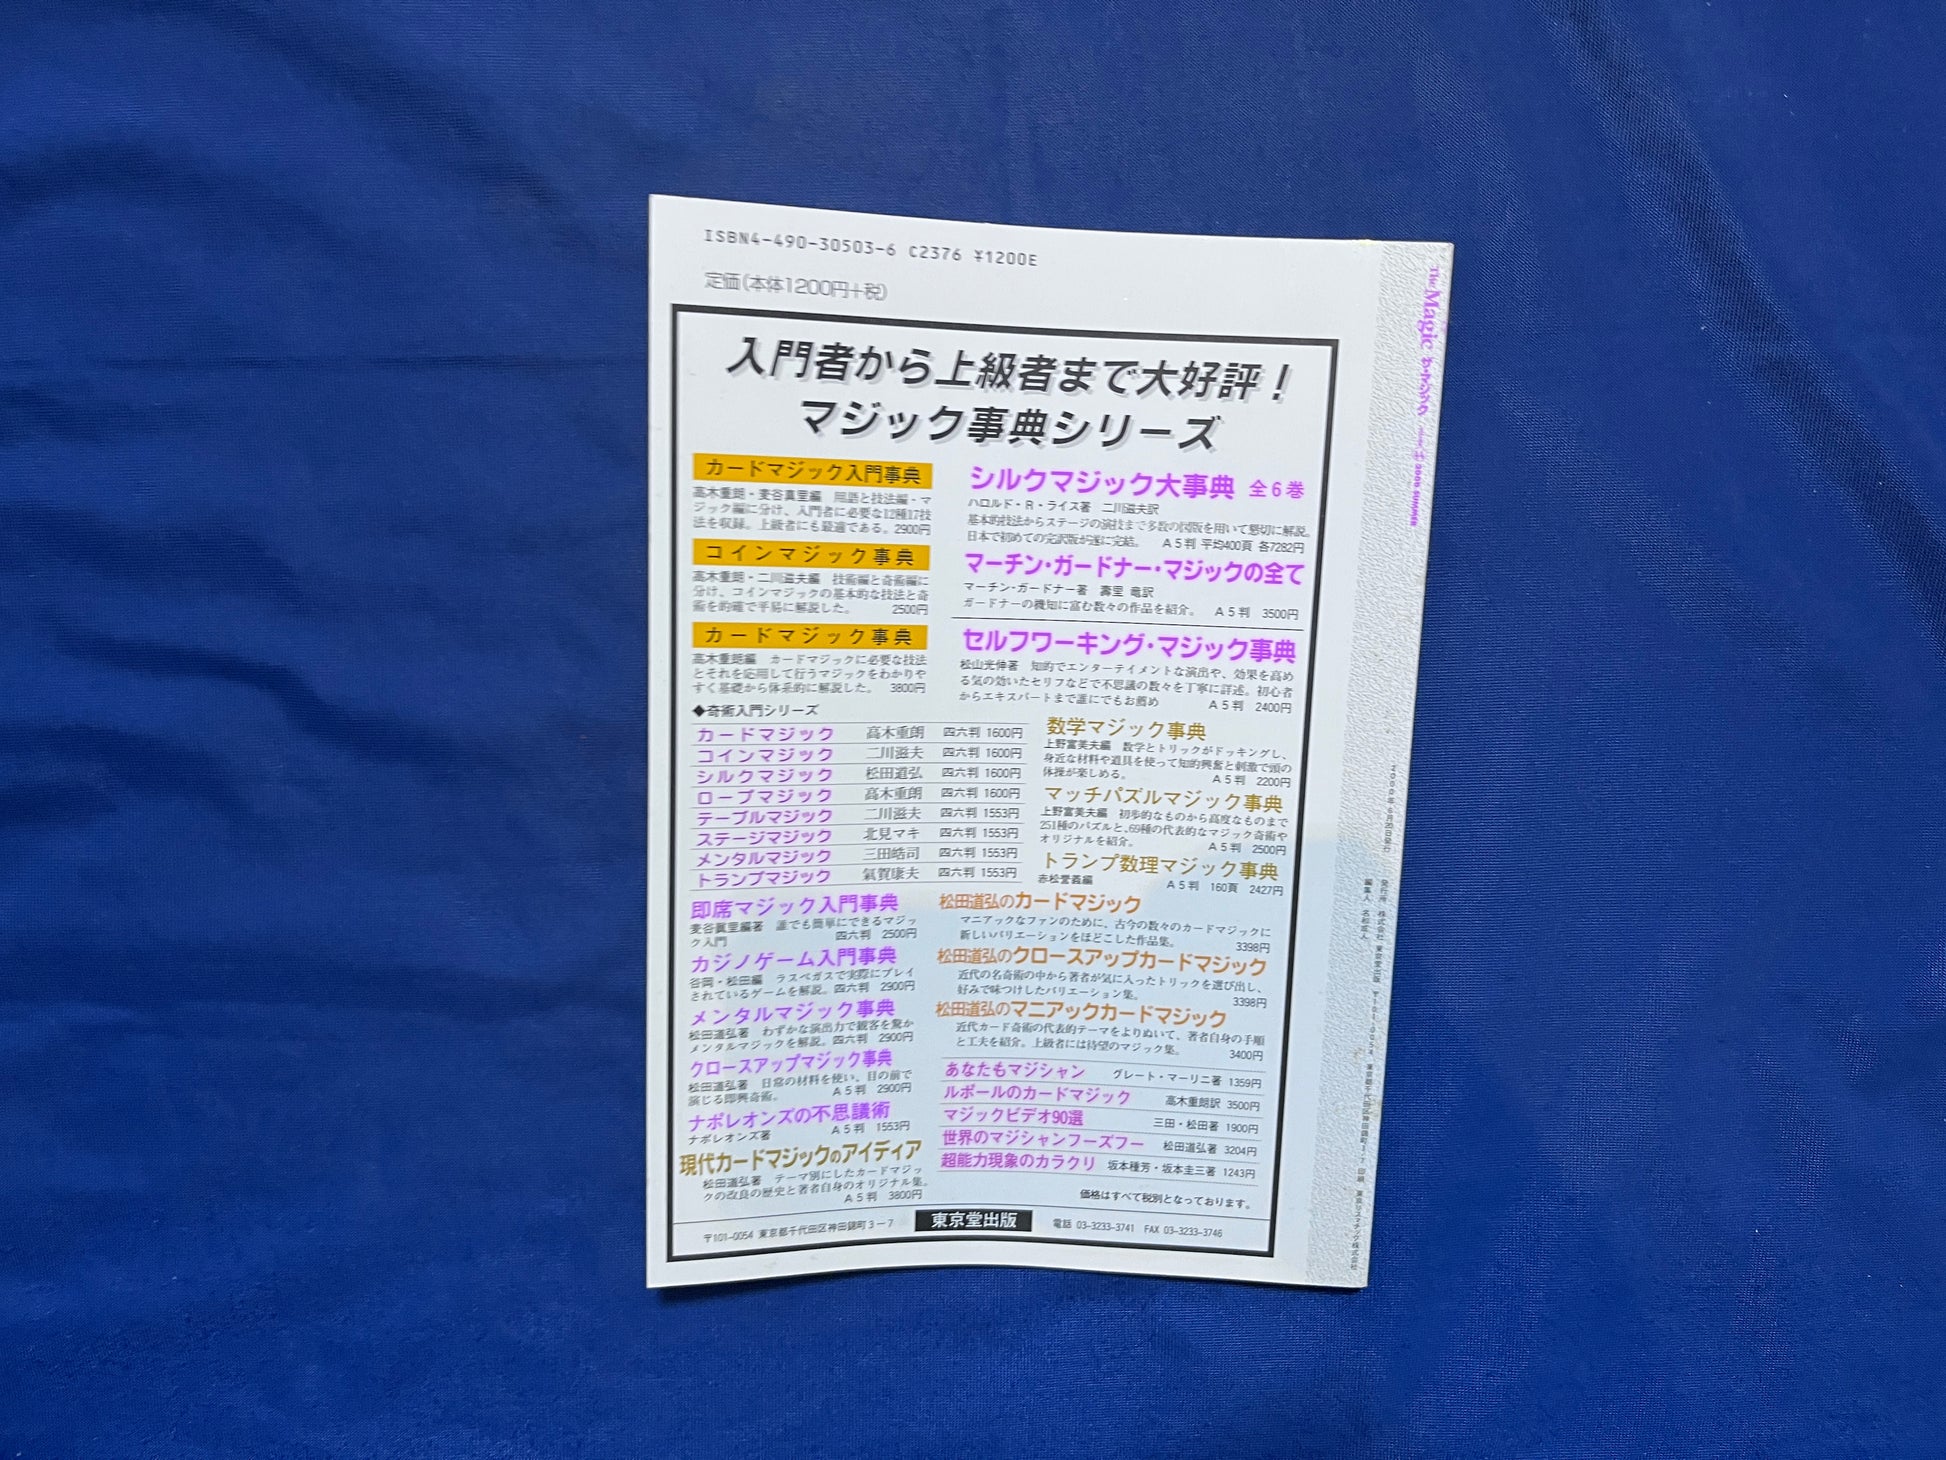 ISBN4-490-30503-6 C2376 ¥1200E
定価(本体1200円+税)
入門者から上級者まで大好評!
マジック事典シリーズ
カードマジック入門事典
高木重朗・麦谷眞里編 用語と技法編・マ
ジック編に分け、入門者に必要な12種17技
法を収録。上級者にも最適である。2900円
コインマジック事典
高木重朗・二川滋夫編 技術編と奇術編に
分け、コインマジックの基本的な技法と奇
術を的確で平易に解説した。 2500円
カードマジック事典
高木重朗編 カードマジックに必要な技法
とそれを応用して行うマジックをわかりや
すく基礎から体系的に解説した。 3800円
◆奇術入門シリーズ
カードマジック 高木重朗 四六判 1600円
コインマジック 二川滋夫 四六判 1600円
シルクマジック 松田道弘 四六判 1600円
ロープマジック 高木重朗 四六判 1600円
テーブルマジック 二川滋夫 四六判 1553円
ステージマジック 北見マキ 四六判 1553円
メンタルマジック 三田皓司 四六判 1553円
トランプマジック 氣賀康夫 四六判 1553円
即席マジック入門事典
麦谷眞里編著 誰でも簡単にできるマジッ
ク入門 四六判 2500円
カジノゲーム入門事典
谷岡・松田編 ラスベガスで実際にプレイ
されているゲームを解説。四六判 2900円
メンタルマジック事典
松田道弘著 わずかな演出力で観客を驚か
メンタルマジックを解説。四六判 2900円
クロースアップマジック事典
松田道弘著 日常の材料を使い、目の前で
演じる即興奇術。 A5判 2900円
ナポレオンズの不思議術
ナポレオンズ著 A5判 1553円
現代カードマジックのアイディア
松田道弘著 テーマ別にしたカードマジッ
クの改良の歴史と著者自身のオリジナル集。
A5判 3800円
シルクマジック大事典 全6巻
ハロルド・R・ライス著 二川滋夫訳
基本的技法からステージの演技まで多数の図版を用いて懇切に解説。
日本で初めての完訳版が遂に完結。 A5判 平均400頁 各7282円
マーチン・ガードナー・マジックの全て
マーチン・ガードナー著 壽里 竜訳
ガードナーの機知に富む数々の作品を紹介。 A5判 3500円
セルフワーキング・マジック事典
松山光伸著 知的でエンターテイメントな演出や、効果を高め
る気の効いたセリフなどで不思議の数々を丁寧に詳述。初心者
からエキスパートまで誰にでもお薦め A5判 2400円
数学マジック事典
上野富美夫編 数学とトリックがドッキングし、
身近な材料や道具を使って知的興奮と刺激で頭の
体操が楽しめる。 A5判 2200円
マッチパズルマジック事典
上野富美夫編 初歩的なものから高度なものまで
251種のパズルと、69種の代表的なマジック奇術や
オリジナルを紹介。 A5判 2500円
トランプ数理マジック事典
赤松 編 A5判 160頁 2427円
松田道弘のカードマジック
マニアックなファンのために、古今の数々のカードマジックに
新しいバリエーションをほどこした作品集。 3398円
松田道弘のクロースアップカードマジック
近代の名奇術の中から著者が気に入ったトリックを選び出し、
好みで味つけしたバリエーション集。 3398円
松田道弘のマニアックカードマジック
近代カード奇術の代表的テーマをよりぬいて、著者自身の手順
と工夫を紹介。上級者には待望のマジック集。 3400円
あなたもマジシャン グレート・マーリニ著 1359円
ルポールのカードマジック 高木重朗訳 3500円
マジックビデオ90選 三田・松田著 1900円
世界のマジシャンフーズフー 松田道弘著 3204円
超能力現象のカラクリ 坂本種芳・坂本圭三著 1243円
価格はすべて税別となっております。
〒101-0054 東京都千代田区神田錦町3-7 東京堂出版 電話 03-3233-3741 FAX 03-3233-3746
THE Magic ザ・マジック 2000 SUMMER
2000年6月20日発行
編集人
発行所 株式会社 東京堂出版 〒101-0054 東京都千代田区神田錦町3-7 印刷 東京リスマチック株式会社